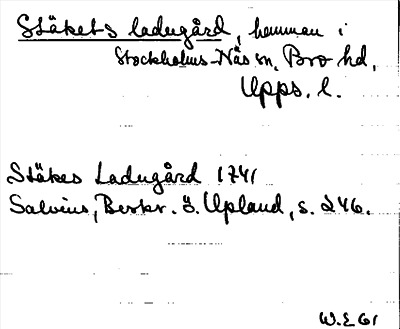 Stäkets ladugård, hemman i
Stockholms-Näs sn, Bro hd,
Upps. l.
Stäkes Ladugård 1741
Salvius, Beskr. ö. Upland, s. 246.
W.E 61